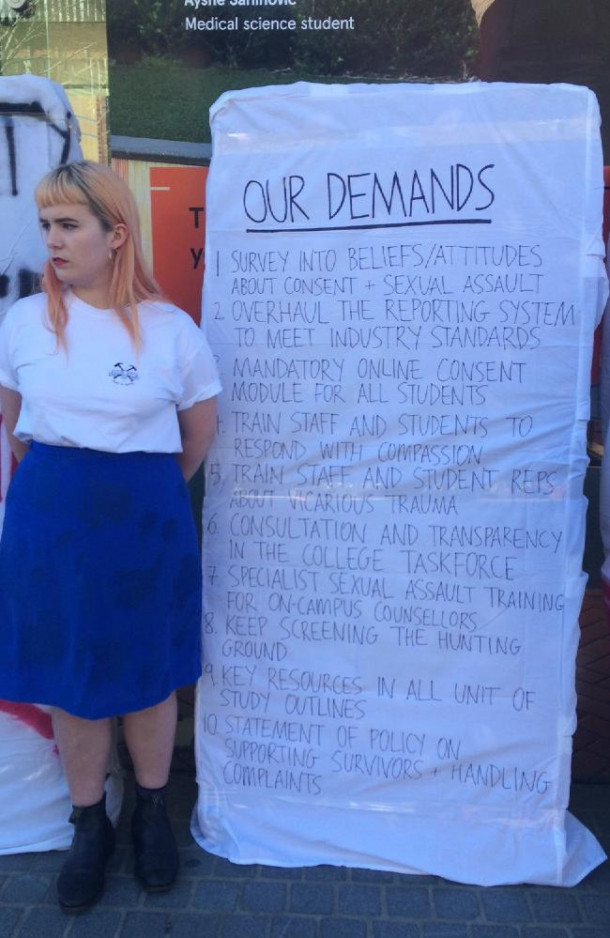 Ayshe Saninovic
Medical science student
OUR DEMANDS
1 SURVEY INTO BELIEFS/ATTITUDES
ABOUT CONSENT + SEXUAL ASSAULT
2. OVERHAUL THE REPORTING SYSTEM
TO MEET INDUSTRY STANDARDS
3 MANDATORY ONLINE CONSENT
MODULE FOR ALL STUDENTS
4. TRAIN STAFF AND STUDENTS TO
RESPOND WITH COMPASSION
5. TRAIN STAFF AND STUDENT REPS
ABOUT VICARIOUS TRAUMA
6. CONSULTATION AND TRANSPARENCY
IN THE COLLEGE TASKFORCE
7 SPECIALIST SEXUAL ASSAULT TRAINING
FOR ON-CAMPUS COUNSELLORS
8. KEEP SCREENING THE HUNTING
GROUND
9. KEY RESOURCES IN ALL UNIT OF
STUDY OUTLINES
10. STATEMENT OF POLICY ON
SUPPORTING SURVIVORS + HANDLING
COMPLAINTS